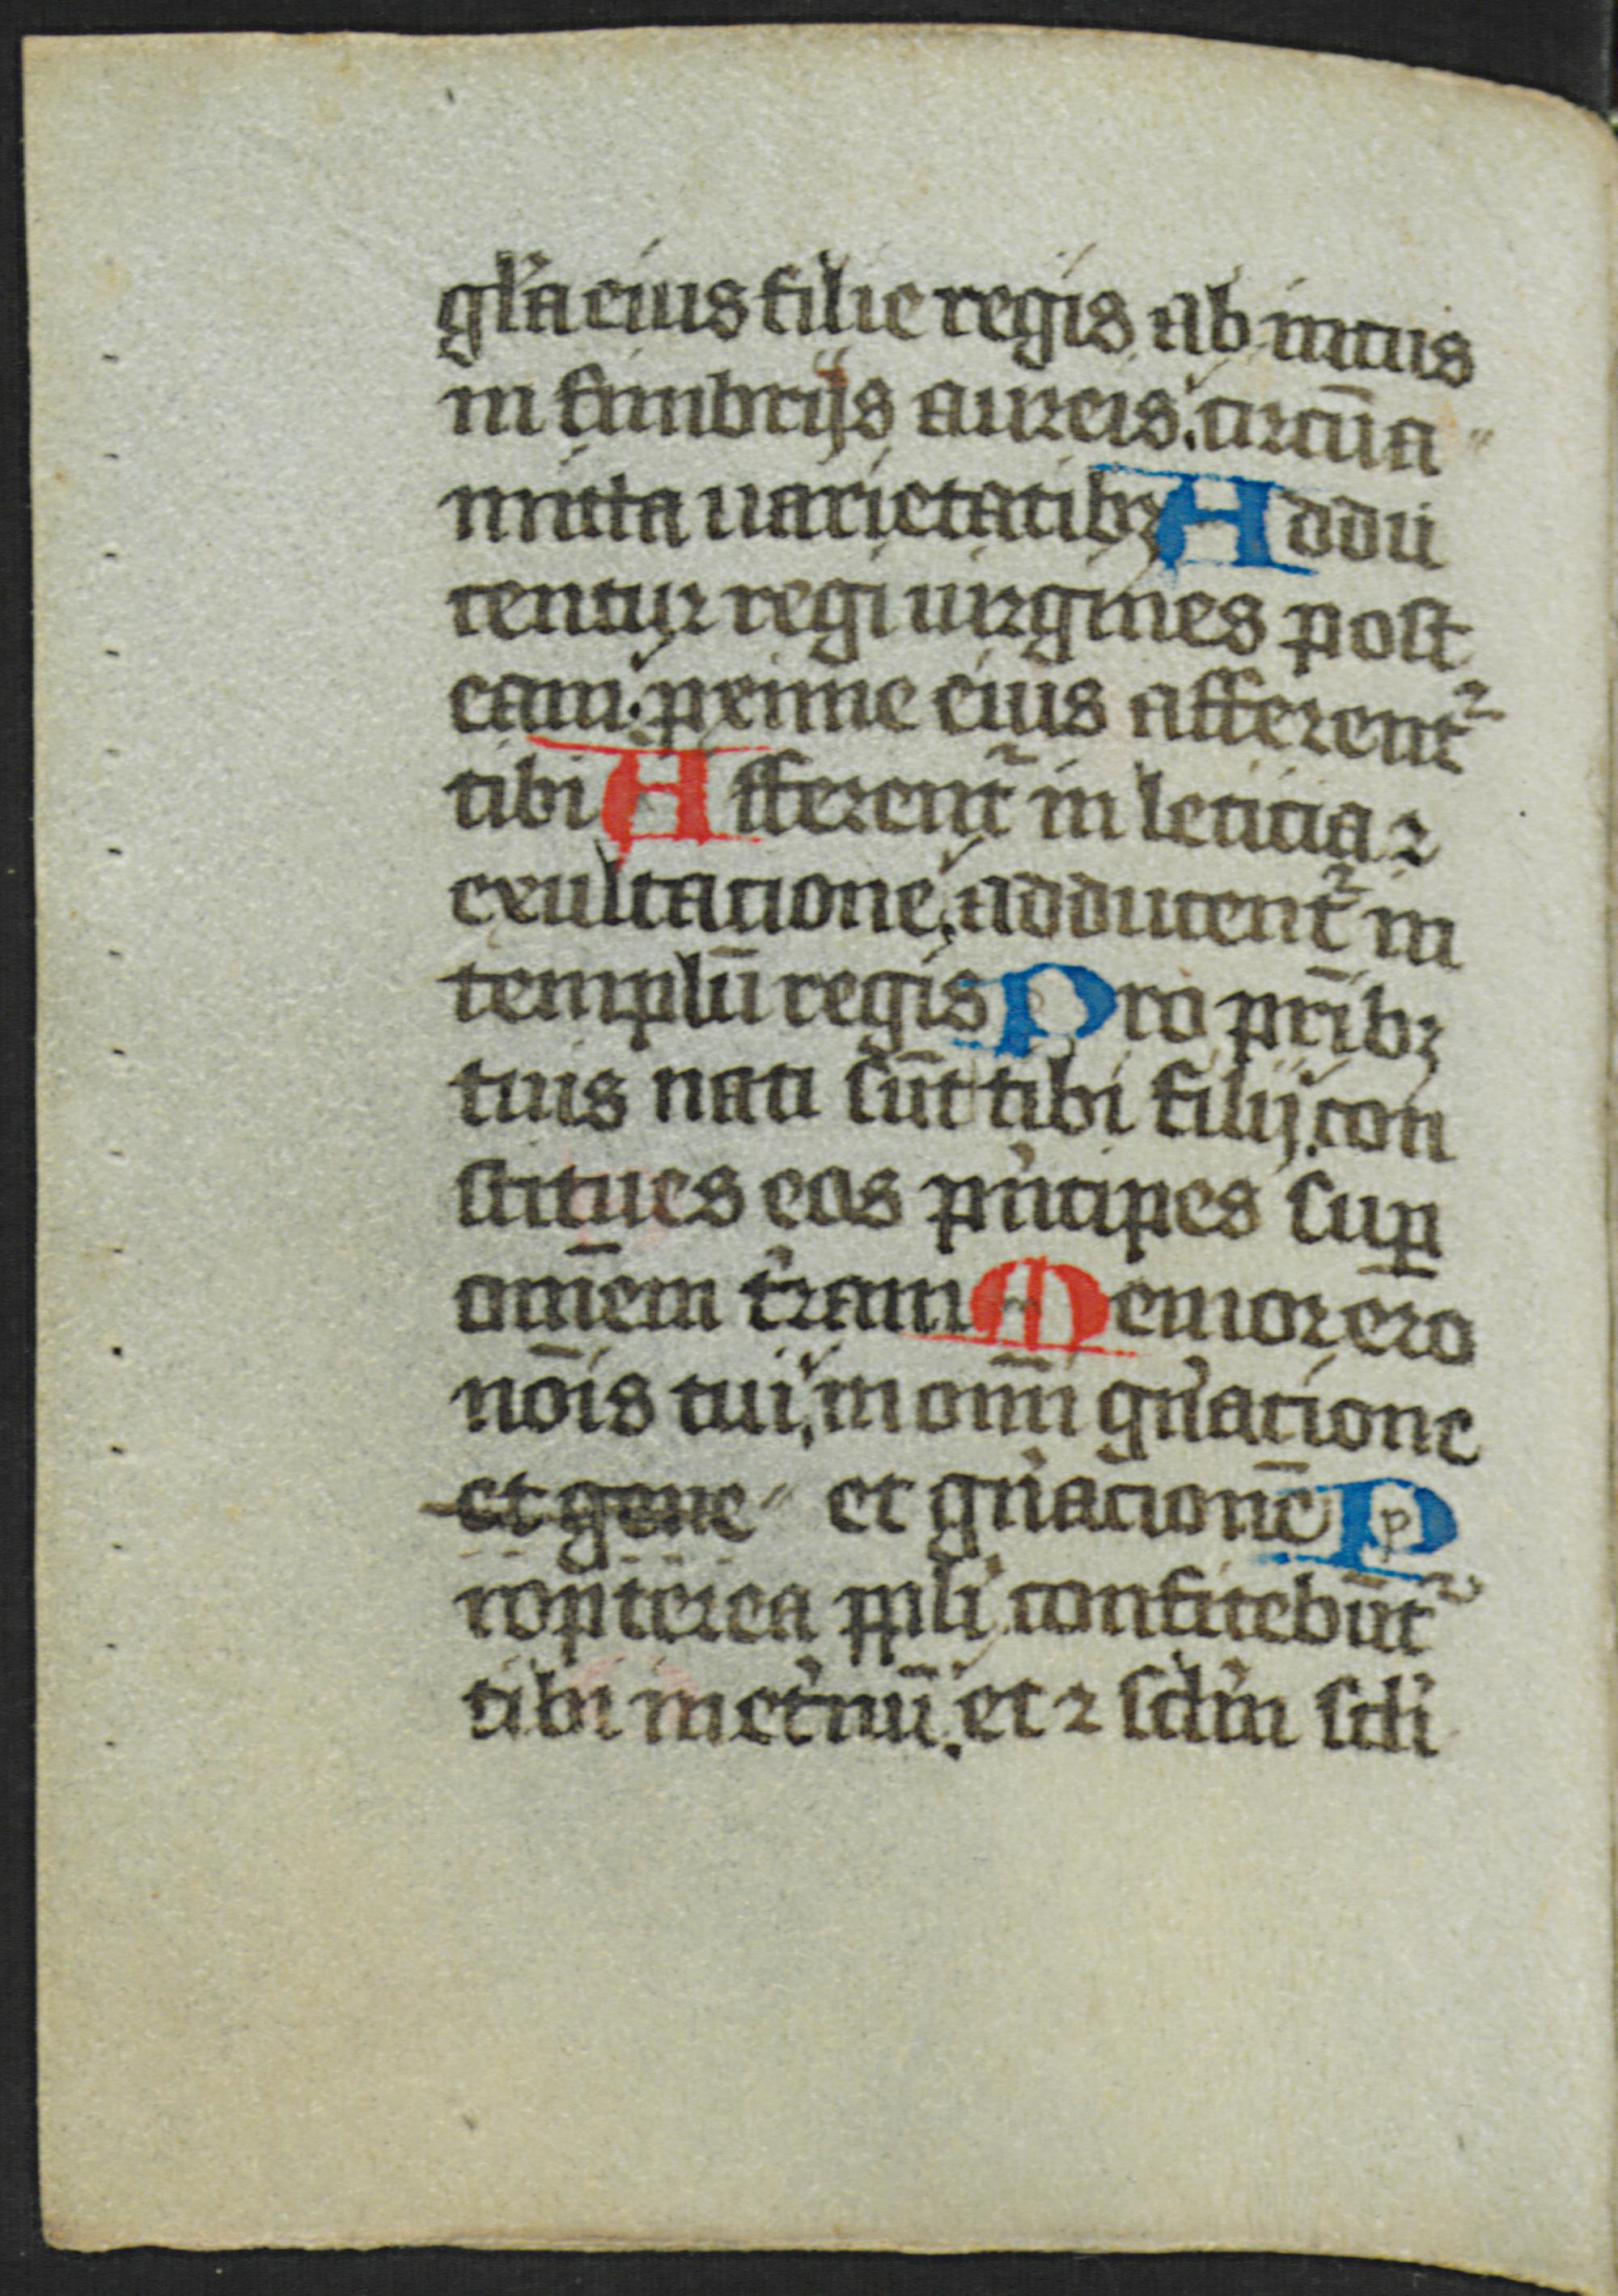 gl̕a eius filie regis ab intus
in fimbrijs aureis. circūa
micta uarietatibꝫ Addu
centur regi uirgines post
eam. proxime eius afferent᷑
tibi Afferent᷑ in leticia ⁊
exultacione. adducent᷑ in
templū regis Pro pr̄ibꝫ
tuis nati sūt tibi filij. con
stitues eos pͥncipes suꝑ
om̄em t̕ram Memor ero
no̅is tui. in om̄i gn̕acione
et gene et gn̕acionē P
ropterea ppl̕i confitebūt᷑
tibi in et̕nū. et ⁊ sc̕lm sc̕li